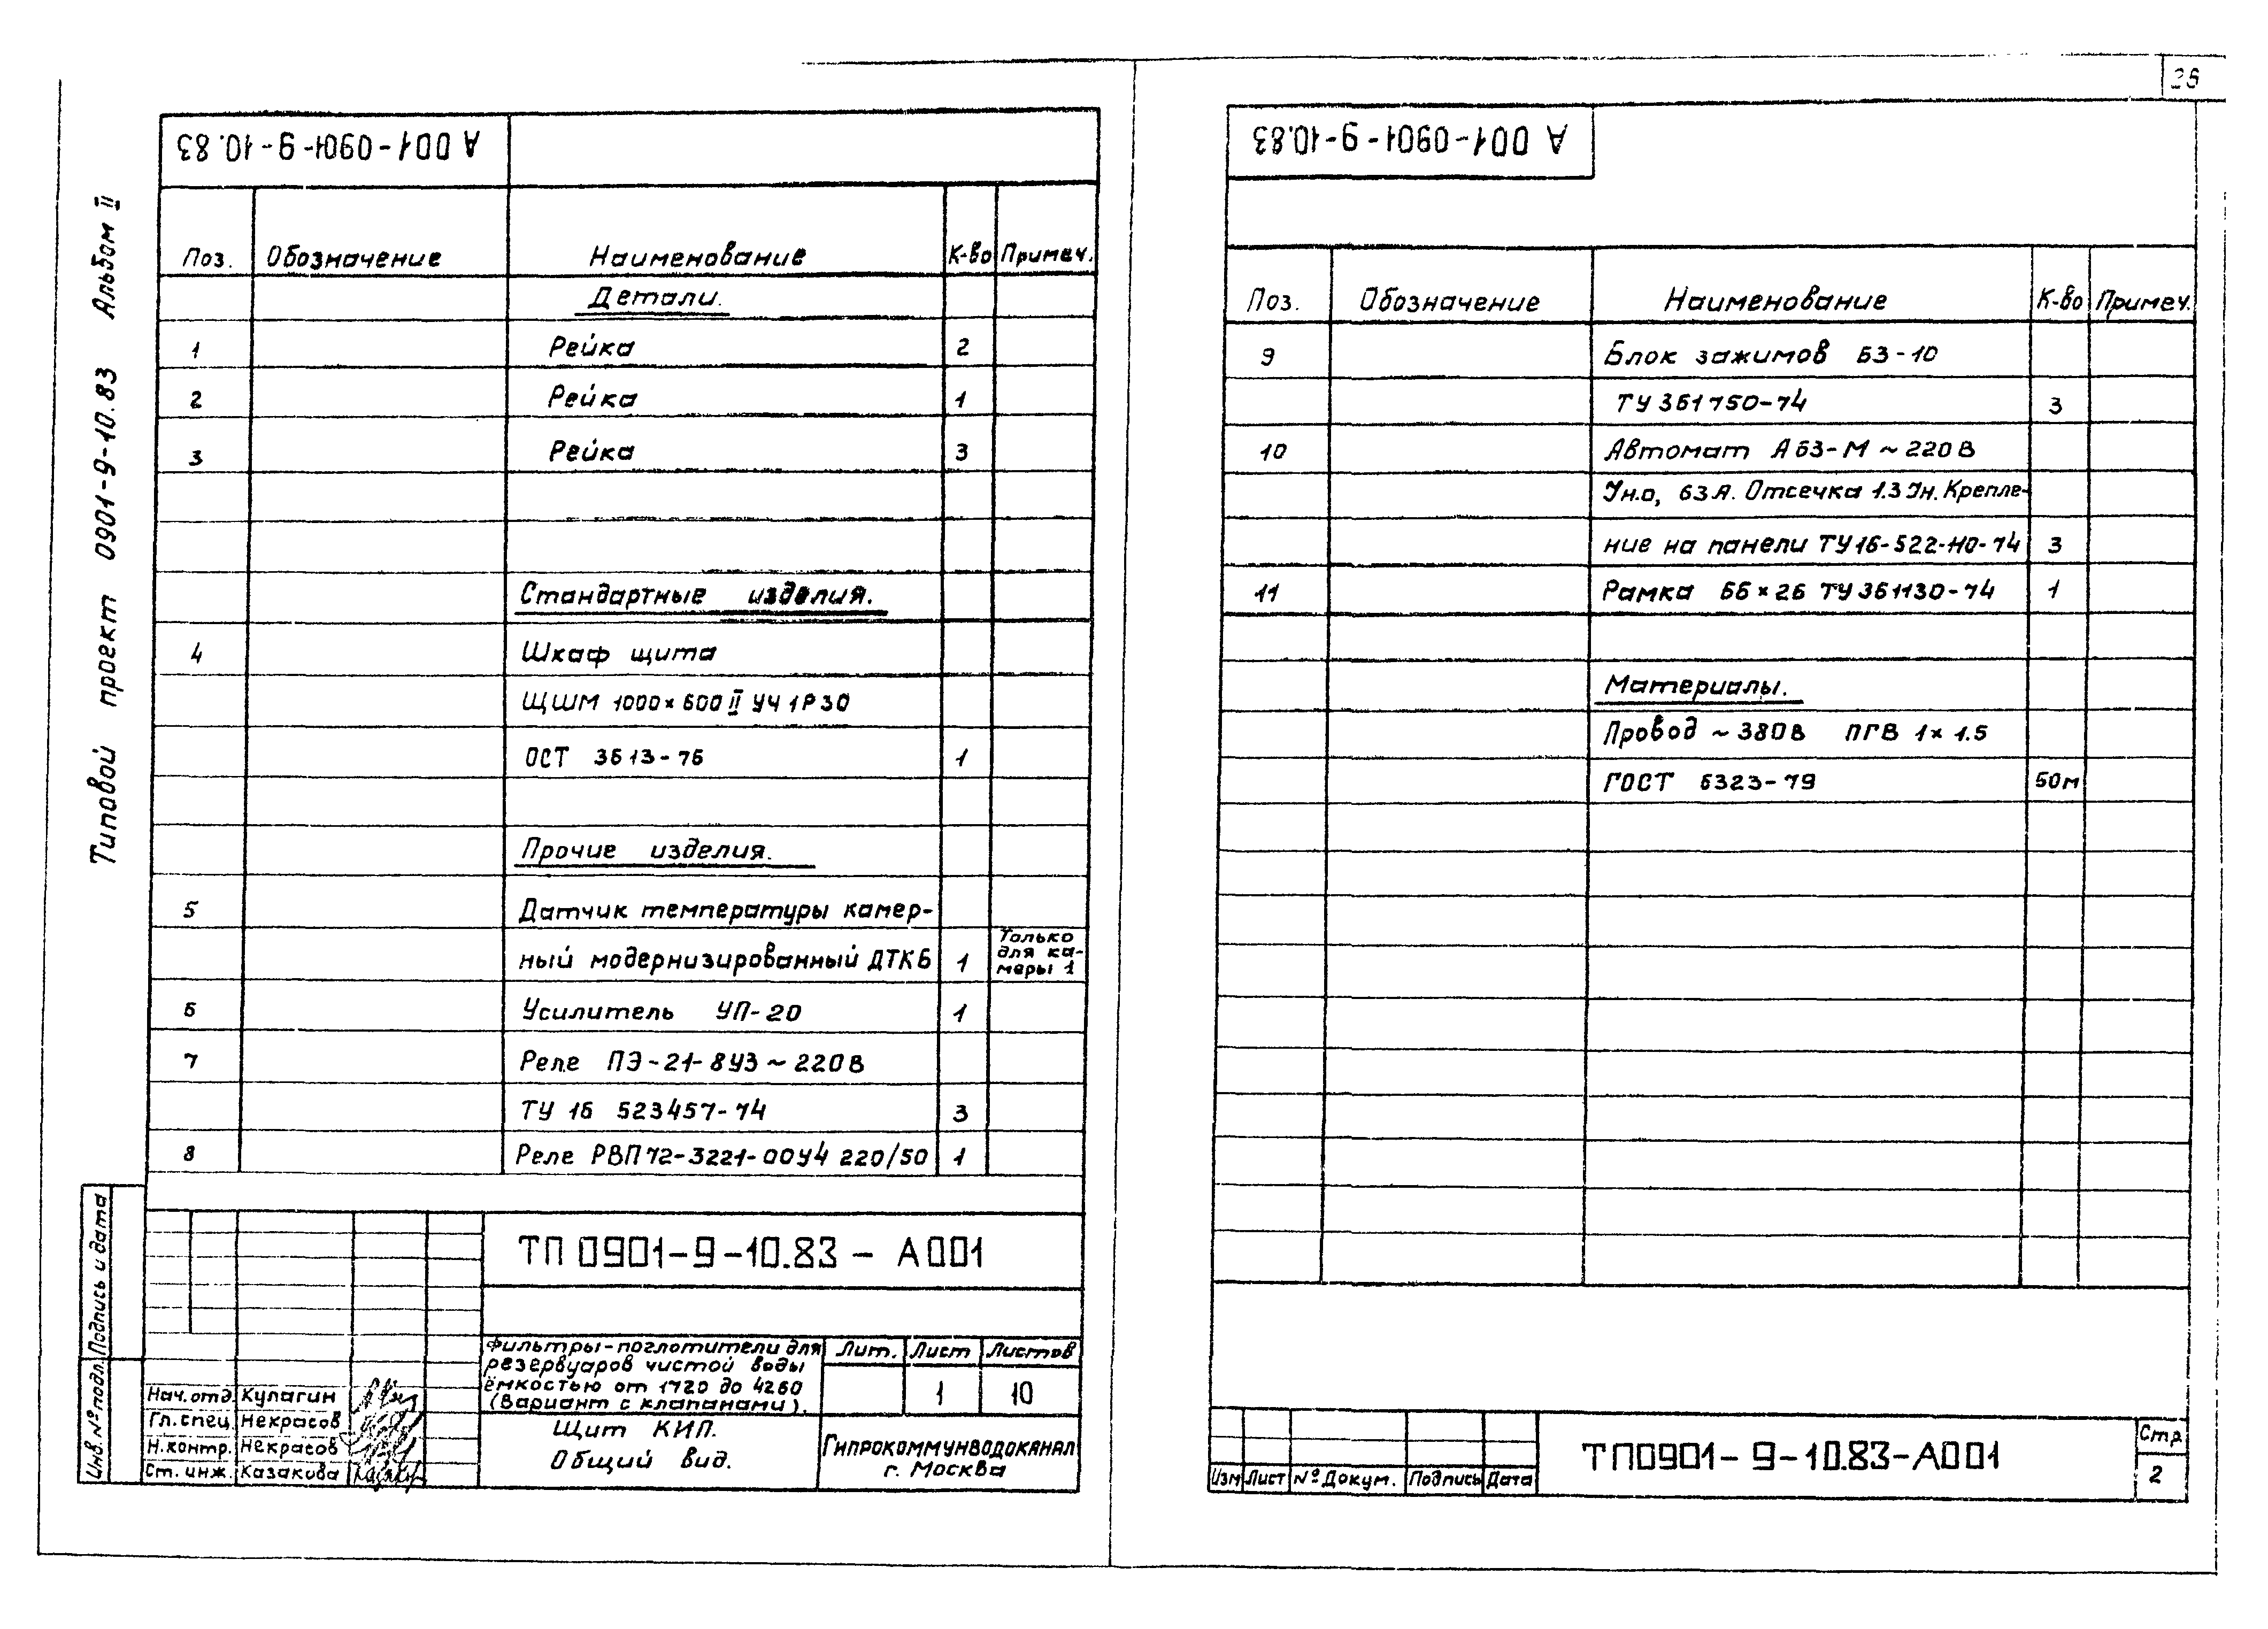 Типовой проект 0901-9-10.83 Альбом II
А 001-0901-9-10.83
Поз. Обозначение Наименование К-во Примеч.
Детали.
1 Рейка 2
2 Рейка 1
3 Рейка 3
Стандартные изделия.
4 Шкаф щита
ЩШМ 1000×600 II УЧ 1Р30
ОСТ 3613-76 1
Прочие изделия.
5 Датчик температуры камер-
ный модернизированный ДТКБ 1 Только для ка-меры 1
6 Усилитель УП-20 1
7 Реле ПЭ-21-8У3 ~ 220В
ТУ 16 523457-74 3
8 Реле РВП72-3221-00У4 220/50 1
Подпись и дата
Инв. № подл.
ТП 0901-9-10.83 - А001
Фильтры-поглотители для
резервуаров чистой воды
ёмкостью от 1720 до 4260
(Вариант с клапанами).
Лит. Лист Листов
1 10
Нач. отд. Кулагин
Гл. спец. Некрасов
Н. контр. Некрасов
Ст. инж. Казакова
Щит КИП.
Общий вид.
Гипрокоммунводоканал
г. Москва
А 001-0901-9-10.83
Поз. Обозначение Наименование К-во Примеч.
9 Блок зажимов БЗ-10
ТУ 361750-74 3
10 Автомат А63-М ~ 220В
Ун.о, 63А. Отсечка 1.3 Ун. Крепле-
ние на панели ТУ16-522-110-74 3
11 Рамка 66×26 ТУ 361130-74 1
Материалы.
Провод ~ 380В ПГВ 1×1.5
ГОСТ 6323-79 50м
Изм Лист № Докум. Подпись Дата
ТП0901-9-10.83-А001
Стр
2